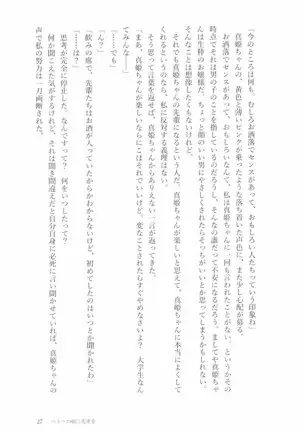 「今のところ何も。むしろお洒落でセンスがあって、おもしろい人たちっていう印象ね」
真姫ちゃんの、黄色と薄いピンクが乗ったような落ち着いた声色に、また少し心配が募る。
お洒落でセンスがあって、おもしろいなんて、私は真姫ちゃんに一回も言われたことがない。その
時点でそれは男の子のことを指しているのだろうし、そんなの誰だって不安になるだろう。ましてや真姫ちゃ
んは生粋のお嬢様だ。ちょっと顔のいい男にやさしくされたらそっちがいいとか思ってしまうかもしれない。
そんなことは想像したくもないけれど。
これまでなら、真姫ちゃんの先輩になるという人だ、真姫ちゃんが楽しいと思えて、真姫ちゃんに本当によくして
くれているのなら、私に反対する義理はない。
そう思って言葉を返せば、真姫ちゃんからありえない一言が返ってきた。
「ま、真姫ちゃんが楽しいならにこはそれでいいけど、変なことされたらすぐやめなさいよ？　大学生なん
てみんな……」
「……でも」
「ん？」
「飲みの席で、先輩たちはお酒が入っていたからかわからないけど、初めてしたのはいつとか聞かれたわ」
「……は？」
思考が完全に停止した。なんですって？　何をいつしたって？
何か聞こえた気がするけれど、それは聞き間違えだと自分自身に必死に言い聞かせていれば、真姫ちゃんの
声で私の努力は一刀両断された。
27